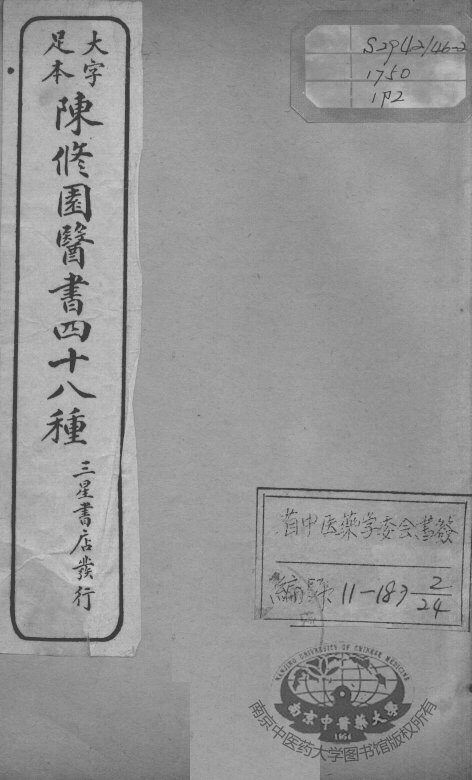 大字
足本
陳修園醫書四十八種
三星書店發行
S2942/46-2
1750
1P2
省中医藥学委会
編號 11-189 2/24
NANJING UNIVERSITY OF CHINESE MEDICINE
南京中醫藥大學
1954
南京中医药大学图书馆版权所有